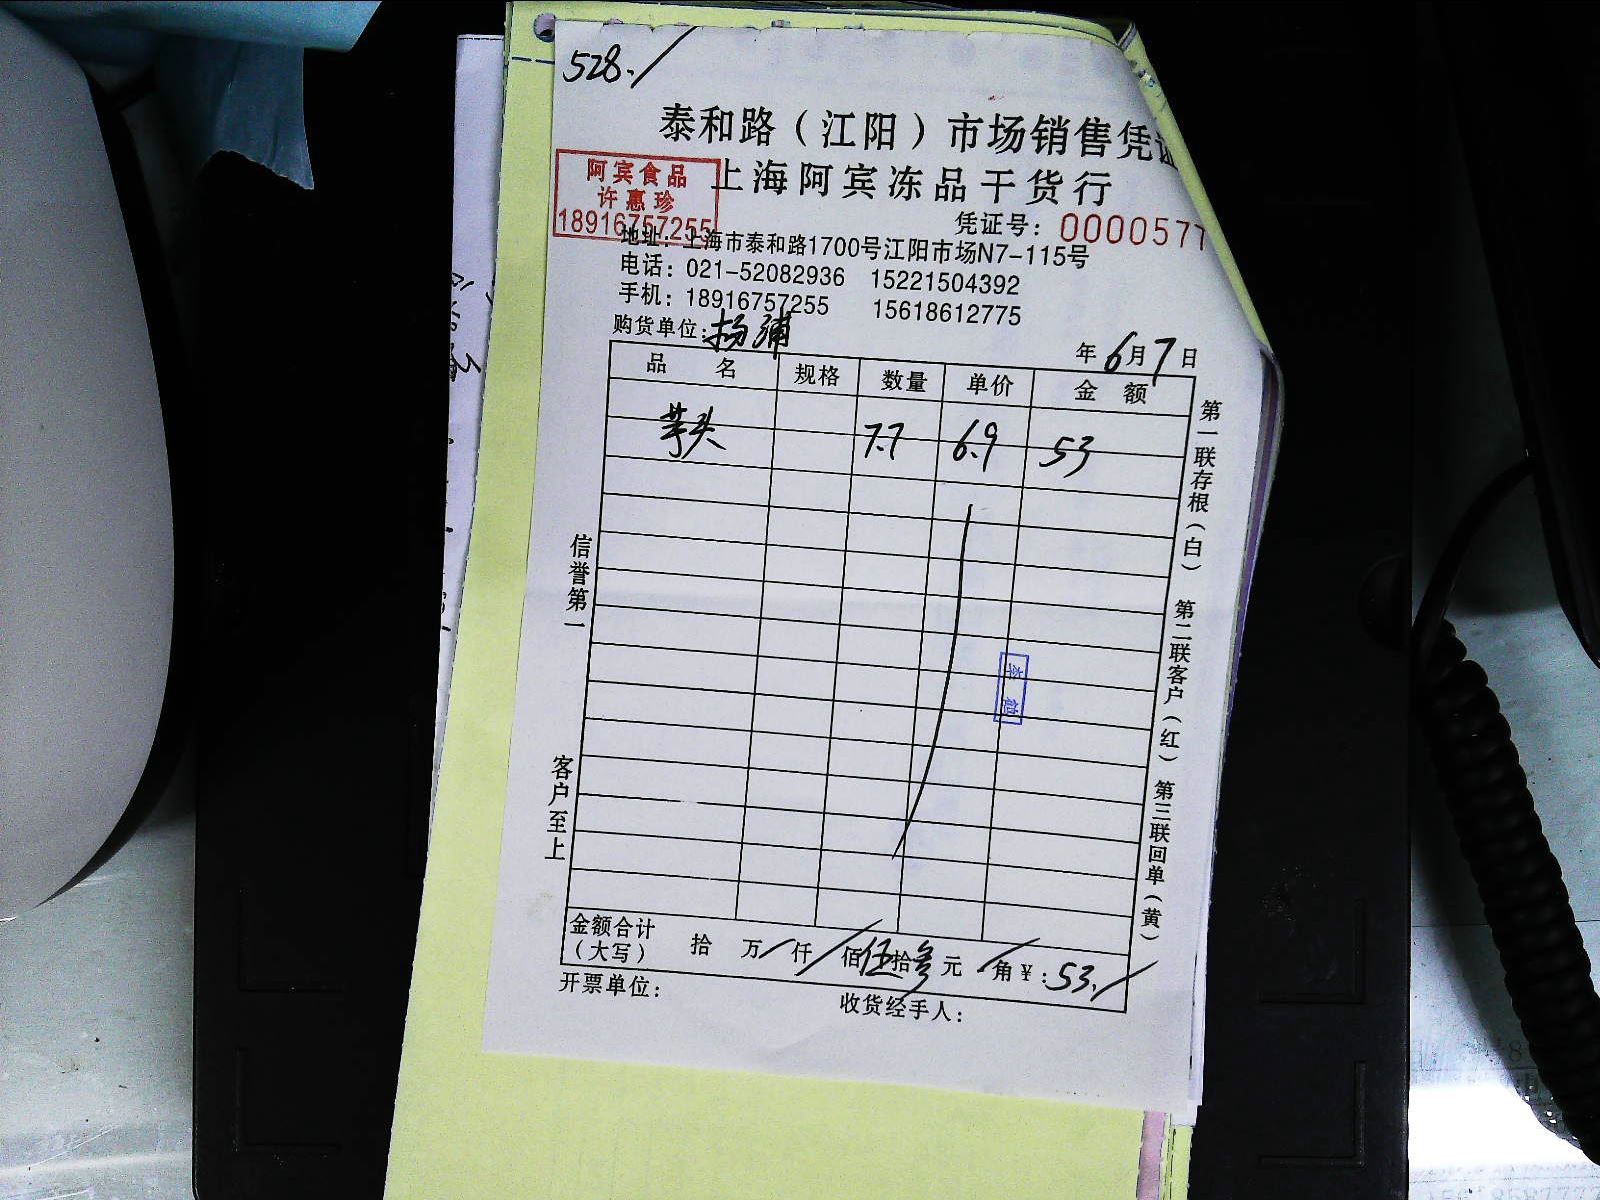 528.
泰和路（江阳）市场销售凭证
上海阿宾冻品干货行
阿宾食品
许惠珍
18916757255
凭证号：0000577
地址：上海市泰和路1700号江阳市场N7-115号
电话：021-52082936 15221504392
手机：18916757255 15618612775
购货单位：杨浦
年6月7日
品名 规格 数量 单价 金额
芋头 7.7 6.9 53
第一联存根（白） 第二联客户（红） 第三联回单（黄）
信誉第一 客户至上
金额合计（大写） 拾 万 仟 佰伍拾叁元 角 ¥：53.
开票单位： 收货经手人：